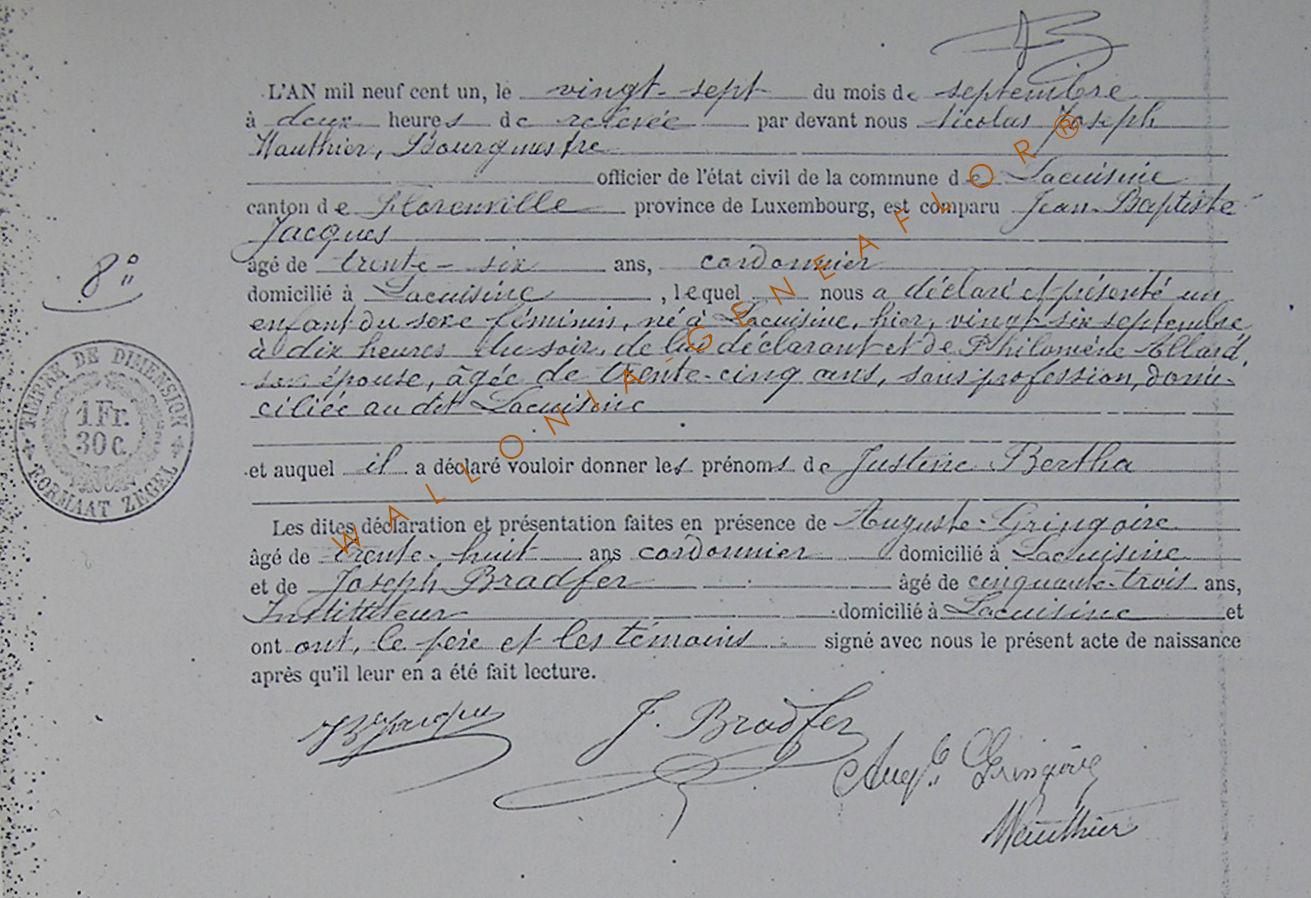 L'AN mil neuf cent un, le vingt-sept du mois de septembre
à deux heures de relevée par devant nous Nicolas Joseph
Wauthier, Bourgmestre
officier de l'état civil de la commune de Lacuisine
canton de Florenville province de Luxembourg, est comparu Jean-Baptiste
Jacques
âgé de trente-six ans, cordonnier
domicilié à Lacuisine, lequel nous a déclaré et présenté un
enfant du sexe féminin, né à Lacuisine, hier, vingt six septembre
à dix heures du soir, de lui déclarant et de Philomène Allard,
son épouse, âgée de trente-cinq ans, sans profession, domi-
ciliée au dit Lacuisine
et auquel il a déclaré vouloir donner les prénoms de Justine Bertha
Les dites déclaration et présentation faites en présence de Auguste Gringoire
âgé de trente-huit ans cordonnier domicilié à Lacuisine
et de Joseph Bradfer âgé de cinquante-trois ans,
Instituteur domicilié à Lacuisine et
ont ont, le père et les témoins signé avec nous le présent acte de naissance
après qu'il leur en a été fait lecture.
JBte Jacques
J. Bradfer
Augte Gringoire
Wauthier
8
TIMBRE DE DIMENSION
1 Fr.
30 C.
FORMAAT ZEGEL
WALLONIA-GENEAFLOR®